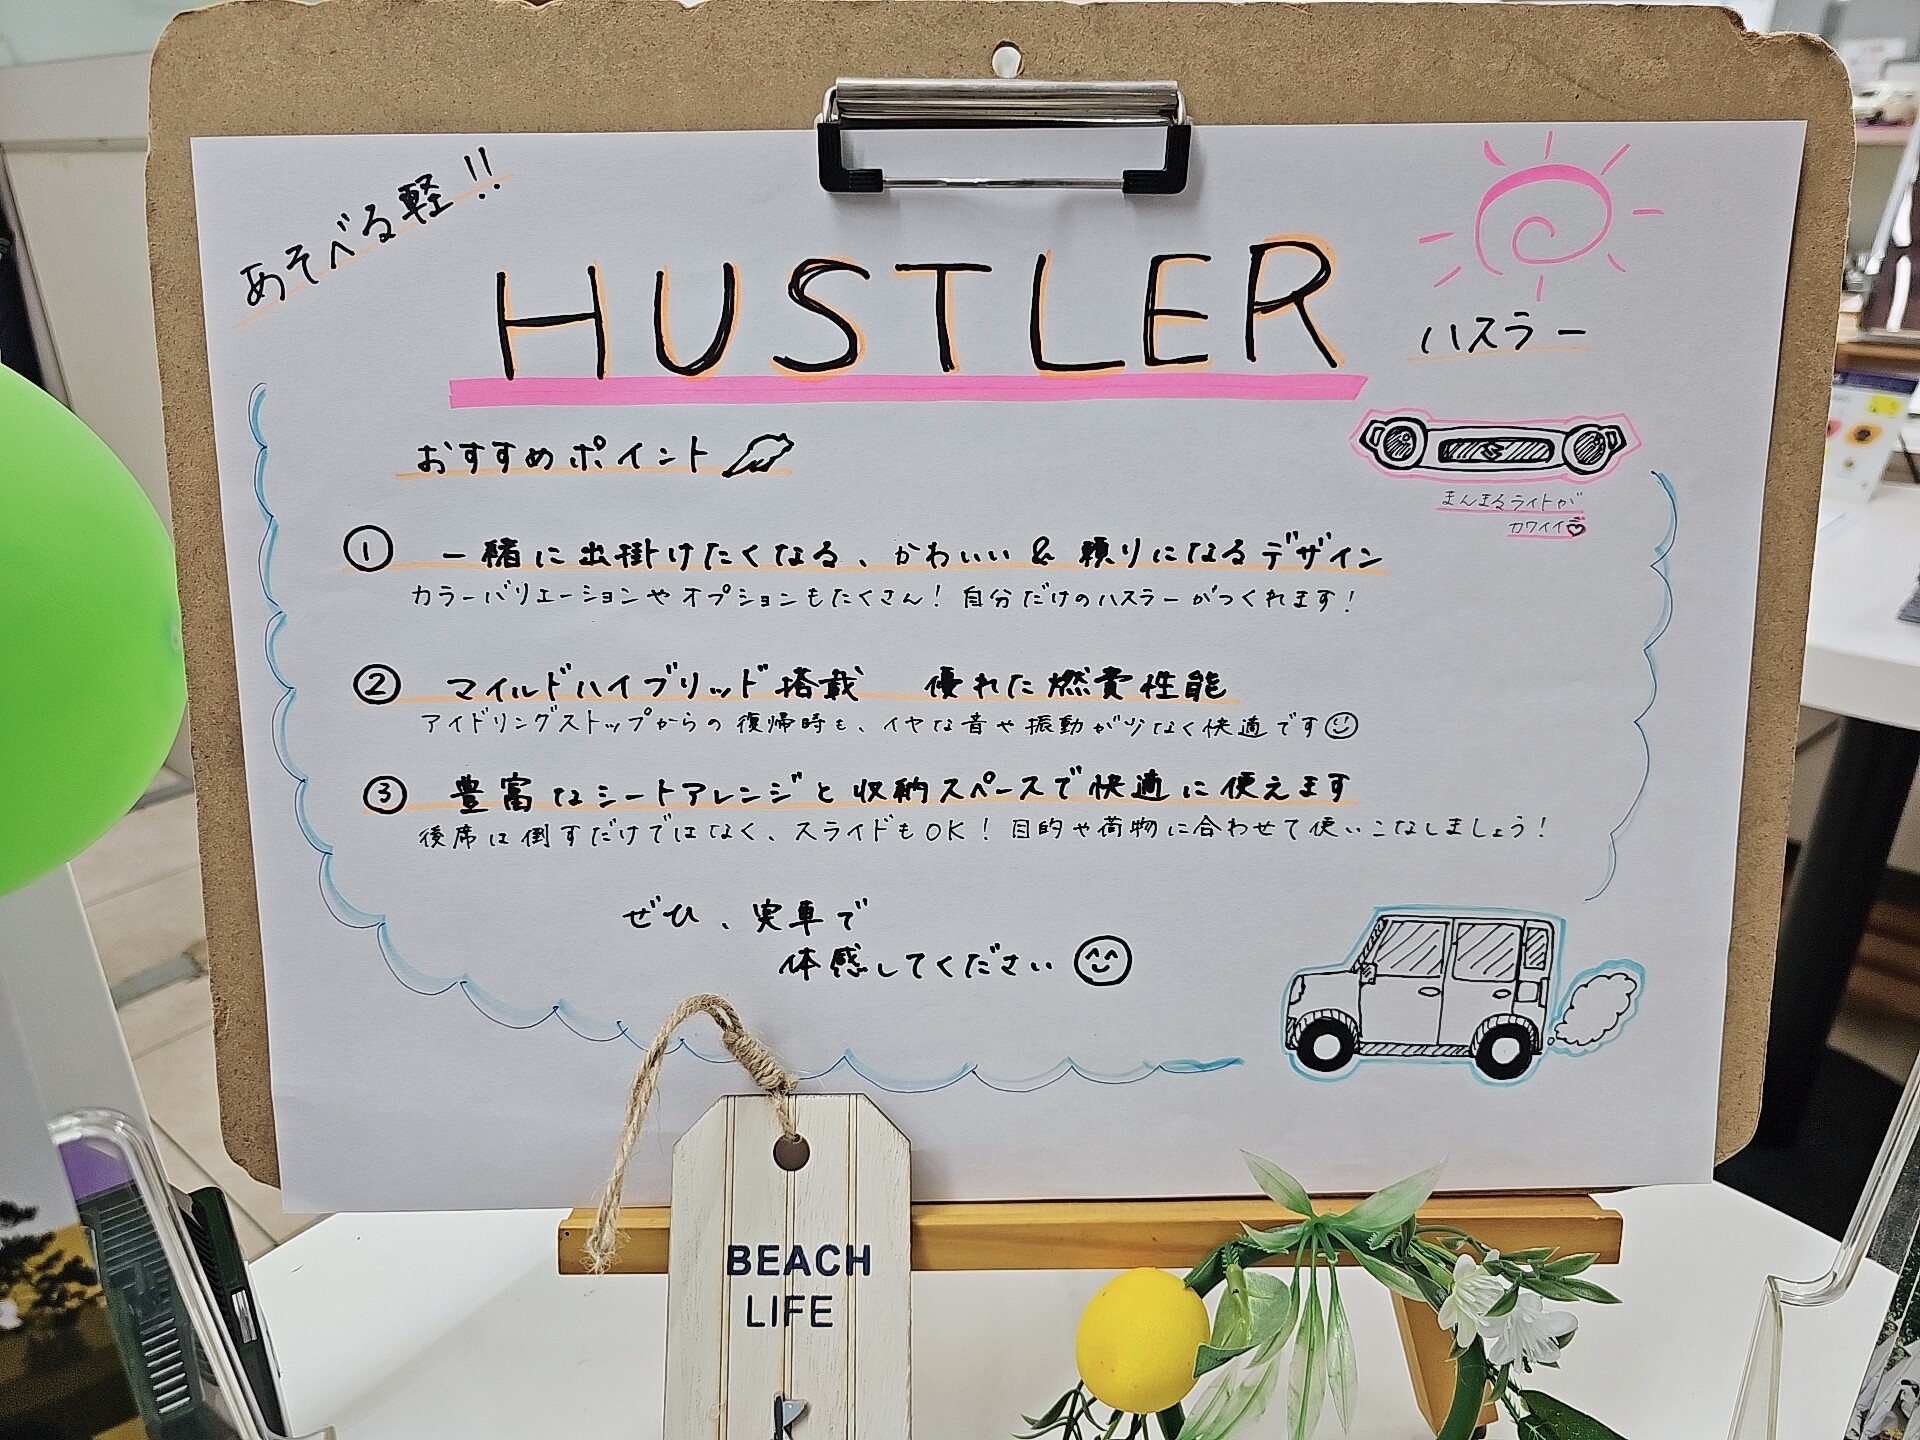 あそべる軽!!
HUSTLER
ハスラー
おすすめポイント
まんまるライトが
カワイイ
① 一緒に出掛けたくなる、かわいい & 頼りになるデザイン
カラーバリエーションやオプションもたくさん! 自分だけのハスラーがつくれます!
② マイルドハイブリッド搭載 優れた燃費性能
アイドリングストップからの復帰時も、イヤな音や振動が少なく快適です
③ 豊富なシートアレンジと収納スペースで快適に使えます
後席は倒すだけではなく、スライドもOK! 目的や荷物に合わせて使いこなしましょう!
ぜひ、実車で
体感してください
BEACH
LIFE